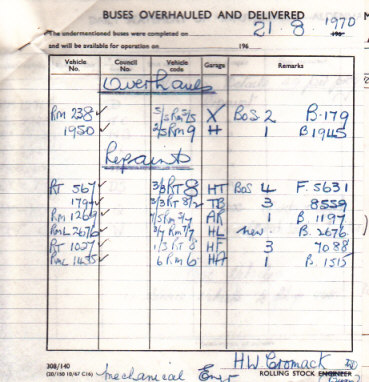 BUSES OVERHAULED AND DELIVERED
The undermentioned buses were completed on 21.8.1970
and will be available for operation on 196
Vehicle No. Council No. Vehicle code Garage Remarks
Overhauls
RM 238 ✓ X BoS 2 B.179
1950 ✓ 2/5 RM 9 H 1 B1945
Repaints
RT 567 ✓ 3/3 RT 8 HT BoS 4 F.5631
179 ✓ 3/3 RT 8/2 TB 3 8559
RM 1269 ✓ AR 1 B.1197
RML 2676 ✓ HL new. B.2676
RT 1027 ✓ 1/3 RT 8 HT 3 7088
RML 1455 ✓ 6 RM 6 HA 1 B.1515
308/140
(20/150 10/67 C16) mechanical Engr
HW Cromack
ROLLING STOCK ENGINEER